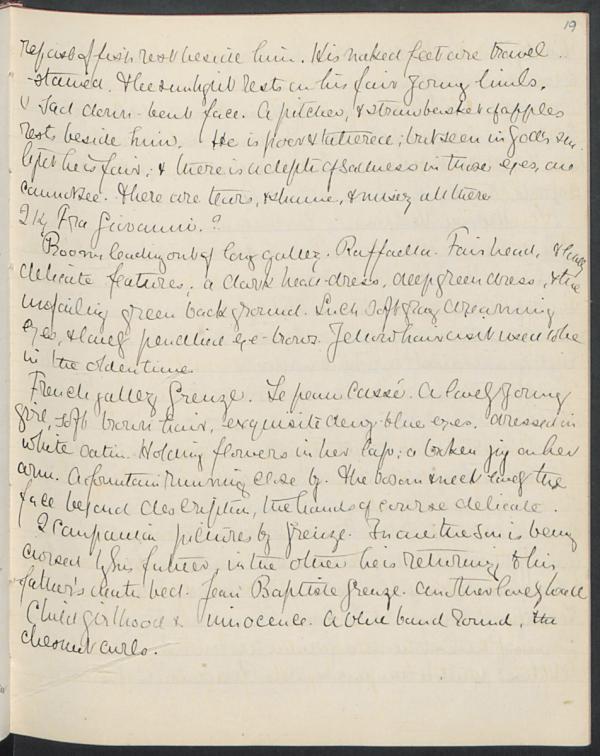 19
repast of fish rest beside him. His naked feet are travel
-stained. & the sunlight rests on his fair young limbs,
& sad down-bent face. A pitcher, & straw basket of apples
rests beside him. He is poor & tattered; but seen in God's sun
light he is fair; & there is a depth of sadness in those eyes, one
cannot see. There are tears, & shame, & misery all there
Fra Giovanni.?
Rooms leading out of long gallery. Raffaella. Fair head, & lovely
delicate features; a dark head-dress, deep green dress, & the
unfailing green background. Such soft gray dreaming
eyes, & lovely pencilled eye-brows. Yellow hair as it used to be
in the olden time.
French gallery Greuze. Le peau Cassé. A lovely young
girl, soft brown hair, exquisite deep blue eyes. dressed in
white satin. Holding flowers in her lap; a broken jug on her
arm. A fountain running close by. The bosom & neck lovely the
face beyond description, the hands of course delicate.
2 companion pictures by Greuze. In one the son is being
cursed by his father, in the other he is returning to his
father's death bed. Jean Baptiste Greuze. another lovely head
Child girlhood & innocence. A blue band round, the
chesnut curls.